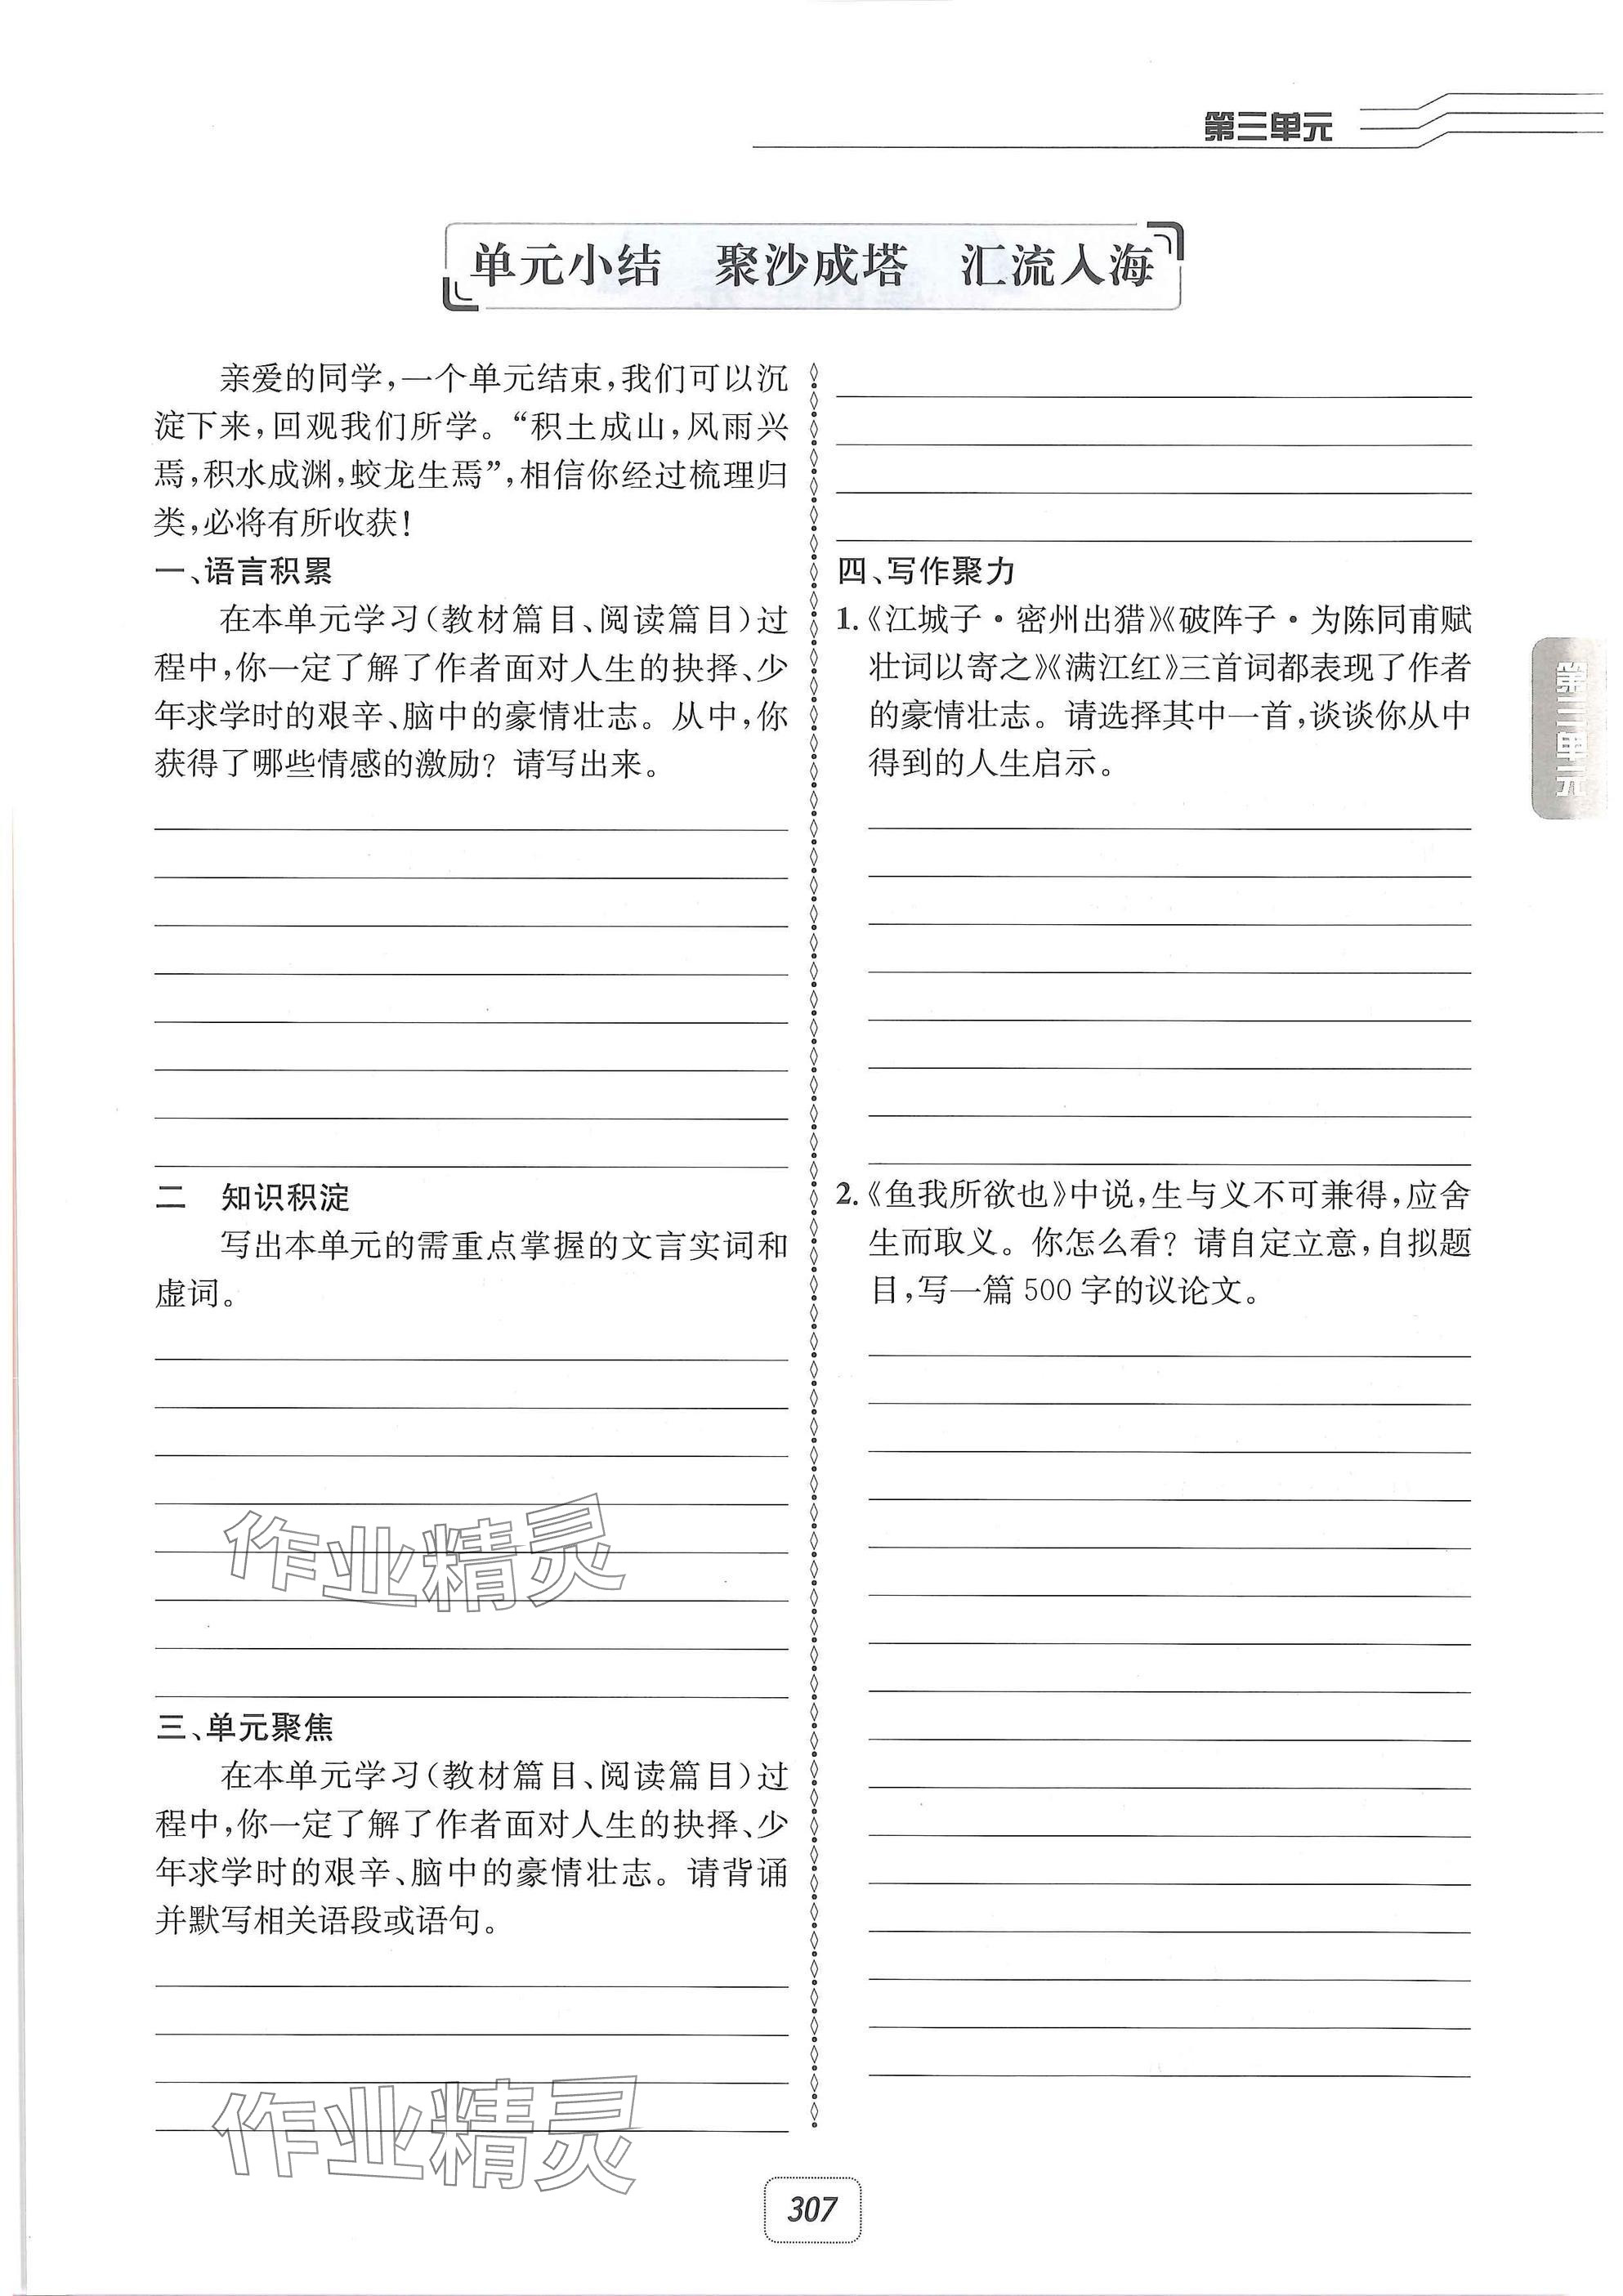 第三单元
单元小结 聚沙成塔 汇流入海
亲爱的同学,一个单元结束,我们可以沉
淀下来,回观我们所学。“积土成山,风雨兴
焉,积水成渊,蛟龙生焉”,相信你经过梳理归
类,必将有所收获!
一、语言积累
在本单元学习(教材篇目、阅读篇目)过
程中,你一定了解了作者面对人生的抉择、少
年求学时的艰辛、脑中的豪情壮志。从中,你
获得了哪些情感的激励?请写出来。
二 知识积淀
写出本单元的需重点掌握的文言实词和
虚词。
作业精灵
三、单元聚焦
在本单元学习(教材篇目、阅读篇目)过
程中,你一定了解了作者面对人生的抉择、少
年求学时的艰辛、脑中的豪情壮志。请背诵
并默写相关语段或语句。
作业精灵
四、写作聚力
1.《江城子·密州出猎》《破阵子·为陈同甫赋
壮词以寄之》《满江红》三首词都表现了作者
的豪情壮志。请选择其中一首,谈谈你从中
得到的人生启示。
2.《鱼我所欲也》中说,生与义不可兼得,应舍
生而取义。你怎么看?请自定立意,自拟题
目,写一篇 500 字的议论文。
第三单元
307